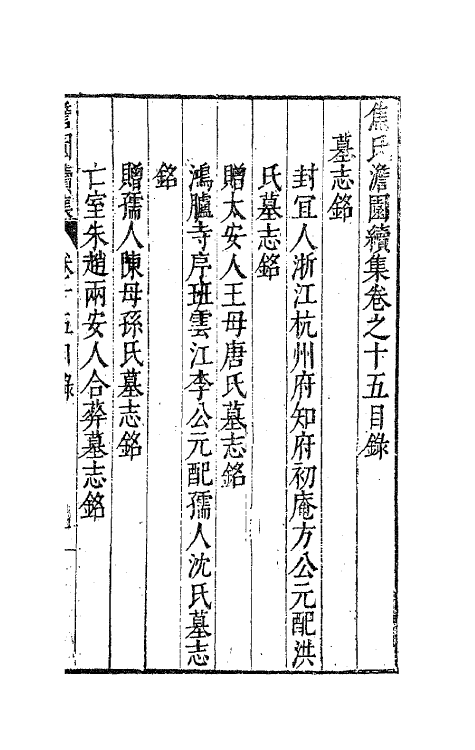 焦氏澹園續集卷之十五目錄
墓志銘
封宜人浙江杭州府知府初庵方公元配洪
氏墓志銘
贈太安人王母唐氏墓志銘
鴻臚寺序班雲江李公元配孺人沈氏墓志
銘
贈孺人陳母孫氏墓志銘
亡室朱趙兩安人合葬墓志銘
澹園續集 卷十五目錄 一